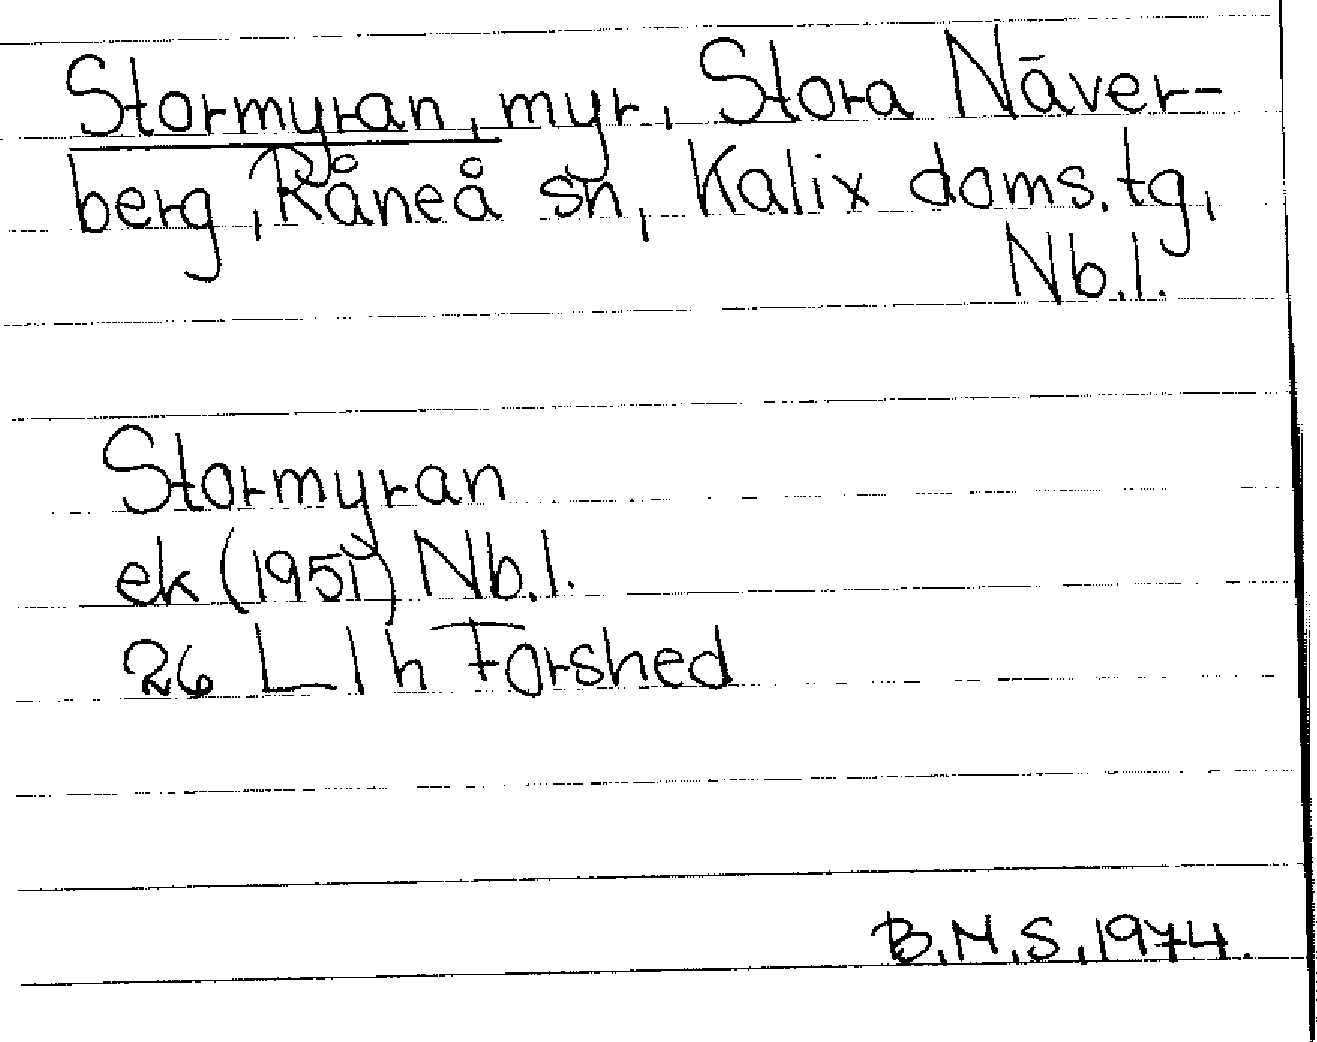 Stormyran, myr, Stora Näver-
berg, Råneå sn, Kalix doms.tg,
Nb.l.
Stormyran
ek (1951) Nb.l.
26 L 1 h Forshed
B.M.S, 1974.